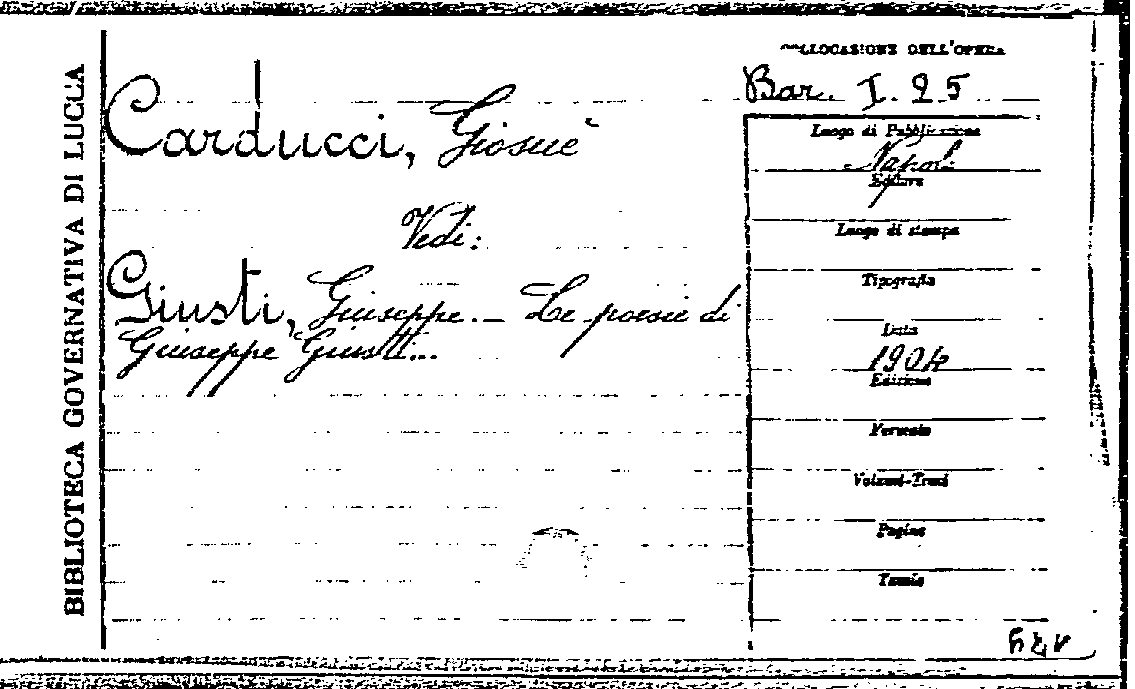 BIBLIOTECA GOVERNATIVA DI LUCCA
COLLOCAZIONE DELL'OPERA
Bar. I. 25
Carducci, Giosuè
Vedi:
Giusti, Giuseppe. - Le poesie di
Giuseppe Giusti...
Luogo di Pubblicazione
Napoli
Editore
Luogo di stampa
Tipografia
Data
1904
Edizione
Formato
Volumi-Tomi
Pagine
Tavole